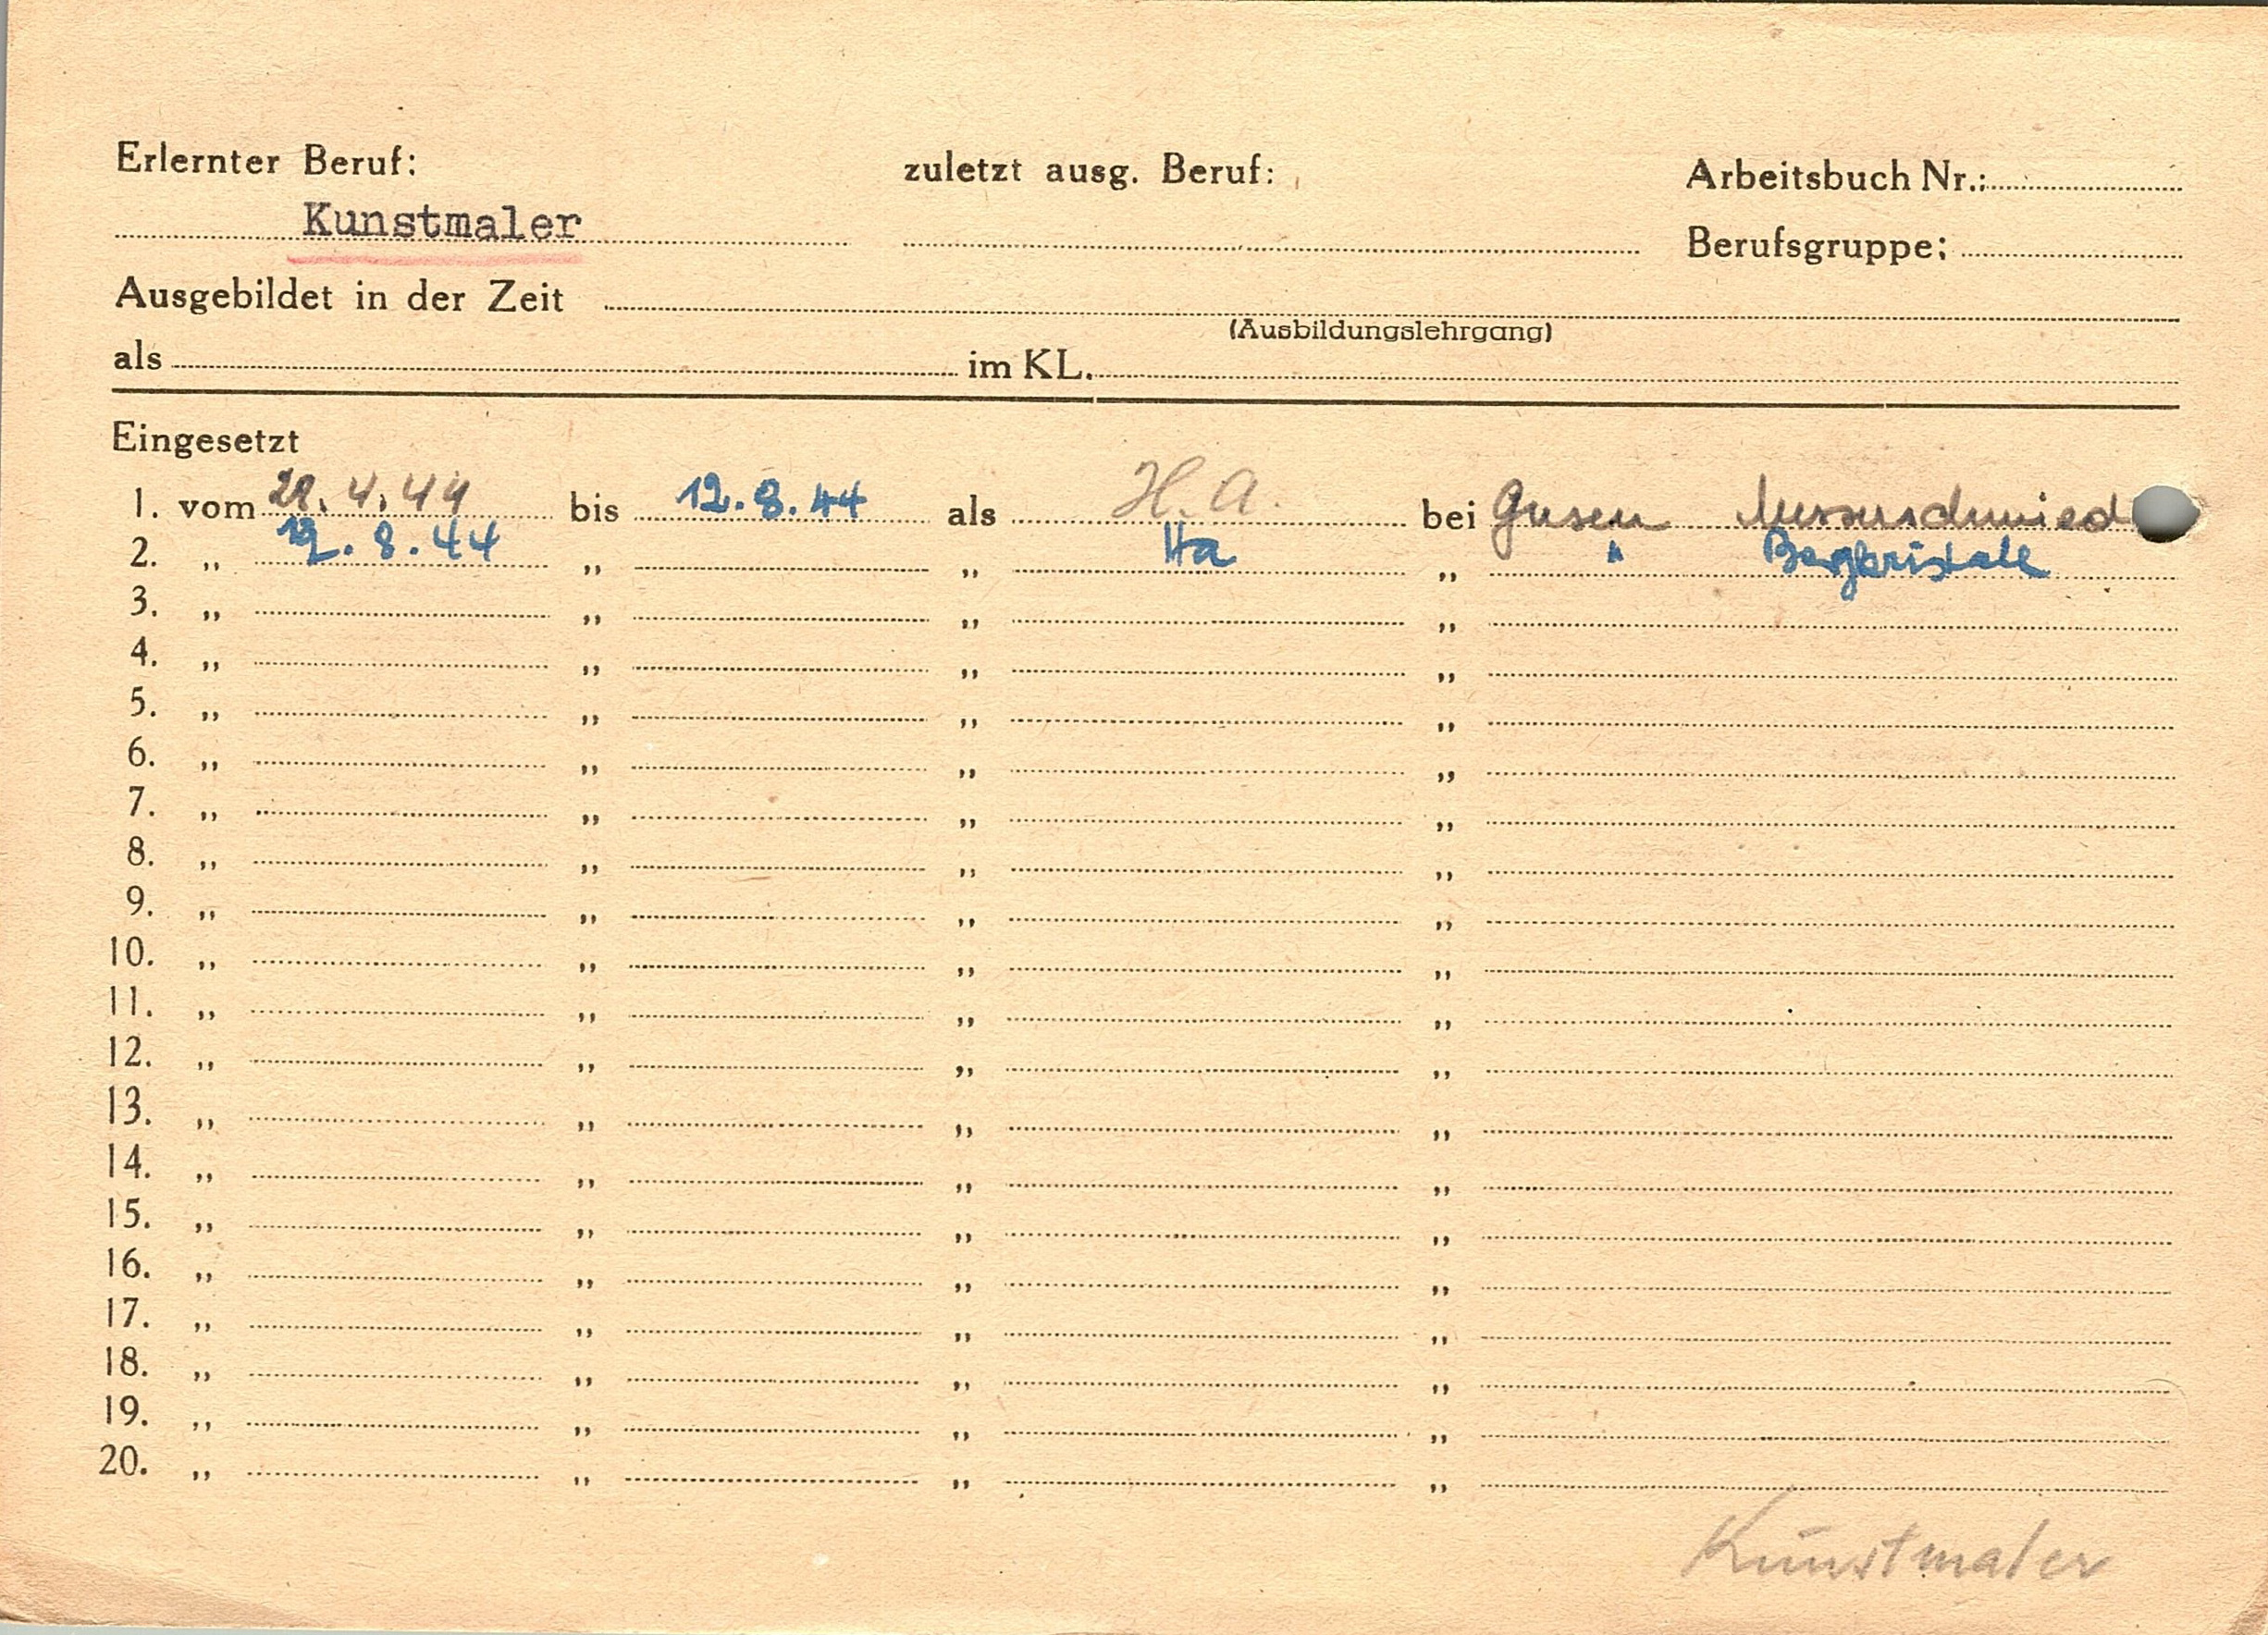 Erlernter Beruf: zuletzt ausg. Beruf: Arbeitsbuch Nr.:
Kunstmaler Berufsgruppe:
Ausgebildet in der Zeit
(Ausbildungslehrgang)
als im KL.
Eingesetzt
1. vom 28.4.44 bis 12.8.44 als H.A. bei Gusen Messerschmied
2. „ 12.8.44 „ „ Ha „ " Bergkristall
3. „ „ „ „
4. „ „ „ „
5. „ „ „ „
6. „ „ „ „
7. „ „ „ „
8. „ „ „ „
9. „ „ „ „
10. „ „ „ „
11. „ „ „ „
12. „ „ „ „
13. „ „ „ „
14. „ „ „ „
15. „ „ „ „
16. „ „ „ „
17. „ „ „ „
18. „ „ „ „
19. „ „ „ „
20. „ „ „ „
Kunstmaler